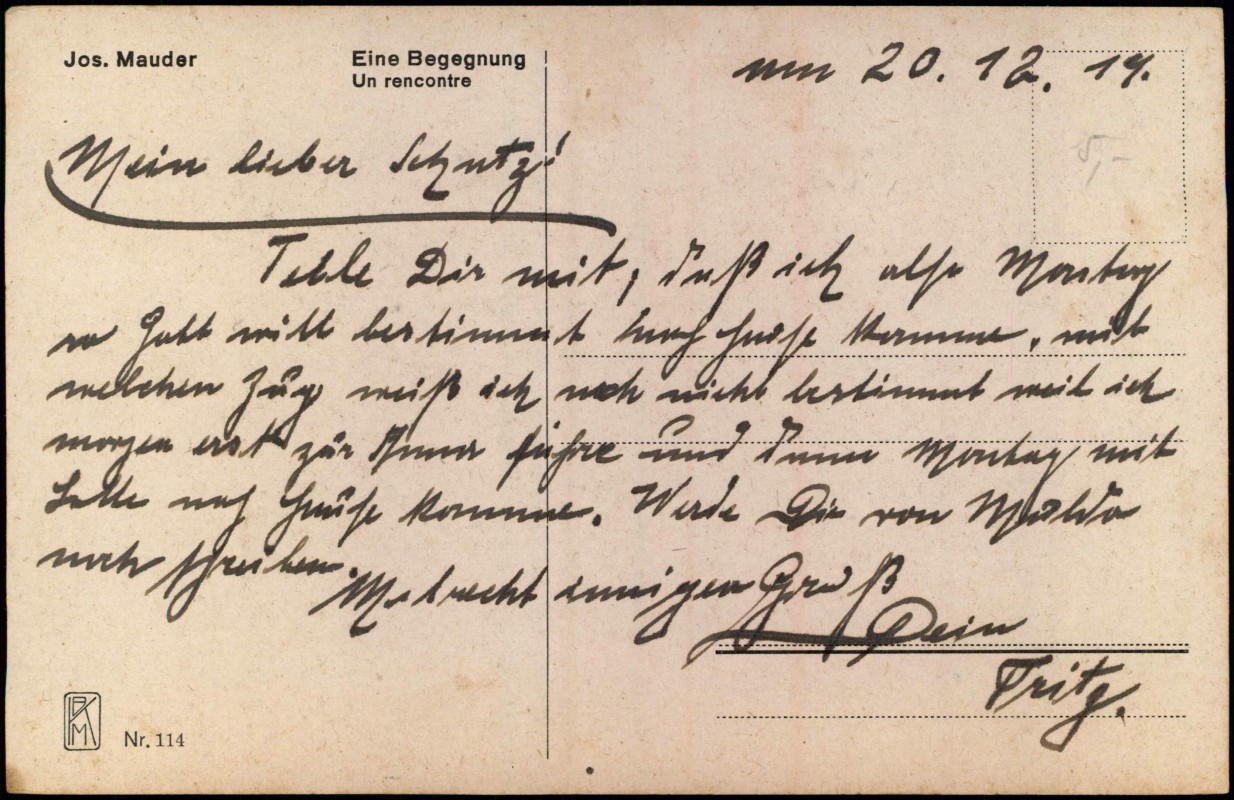 Jos. Mauder
Eine Begegnung
Un rencontre
am 20. 12. 19.
Mein lieber Schatz!
Teile Dir mit, daß ich also Montag
so Gott will bestimmt nach Hause komme, mit
welchen Zug weiß ich noch nicht bestimmt weil ich
morgen erst zur Anna fahre und dann Montag mit
nach Hause komme. Werde Dir von
noch schreiben.
innigen Gruß
Dein
Fritz.
Nr. 114
5,-